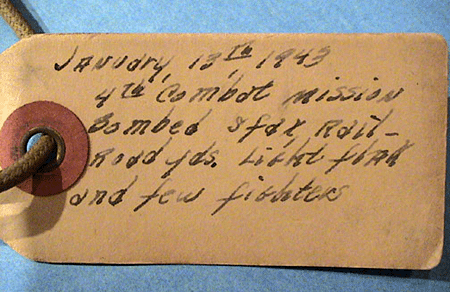 January, 13th, 1943
4th Combat mission
Bombed Sfax, Rail-
Road yds. Light flak
and few fighters